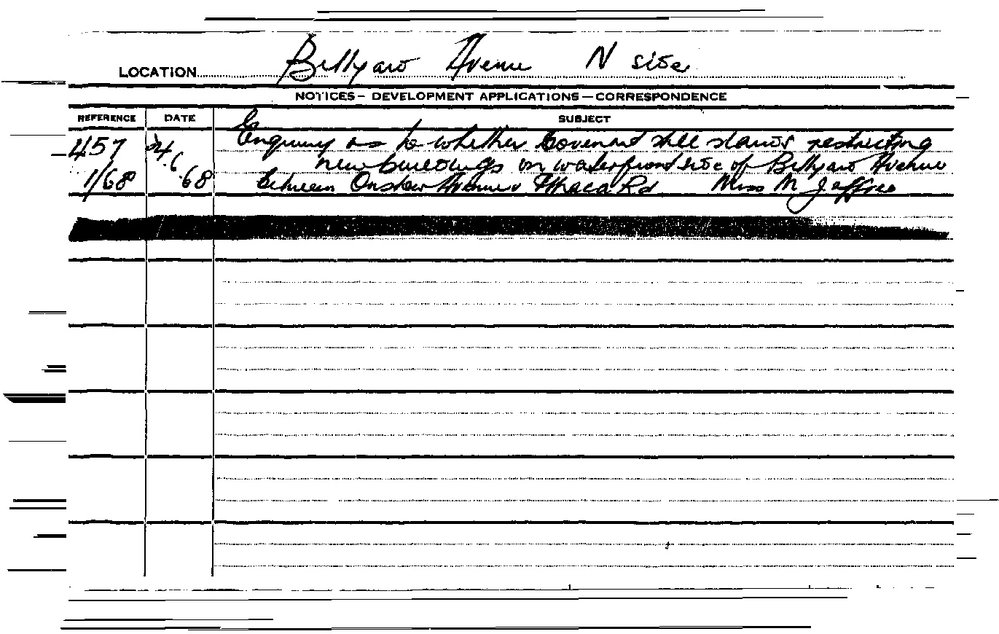 LOCATION Billyard Avenue N side
NOTICES - DEVELOPMENT APPLICATIONS - CORRESPONDENCE
REFERENCE DATE SUBJECT
457 24 Enquiry as to whether Covenant still stands restricting
6 new buildings on waterfront side of Billyard Avenue
1/68 68 between Onslow Avenue & Ithaca Rd Miss M Jeffree